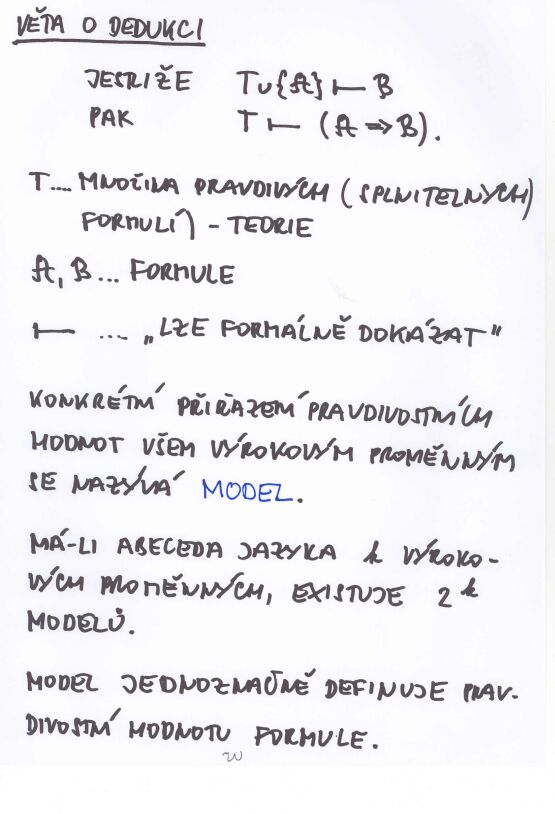 VĚTA O DEDUKCI
JESTLIŽE T∪{A} ⊢ B
PAK T ⊢ (A ⇒ B).
T.... MNOŽINA PRAVDIVÝCH (SPLNITELNÝCH)
FORMULÍ) - TEORIE
A, B ... FORMULE
⊢ ... „LZE FORMÁLNĚ DOKÁZAT"
KONKRÉTNÍ PŘIŘAZENÍ PRAVDIVOSTNÍCH
HODNOT VŠEM VÝROKOVÝM PROMĚNNÝM
SE NAZÝVÁ MODEL.
MÁ-LI ABECEDA JAZYKA k VÝROKO-
VÝCH PROMĚNNÝCH, EXISTUJE 2^k
MODELŮ.
MODEL JEDNOZNAČNĚ DEFINUJE PRAV-
DIVOSTNÍ HODNOTU FORMULE.
w